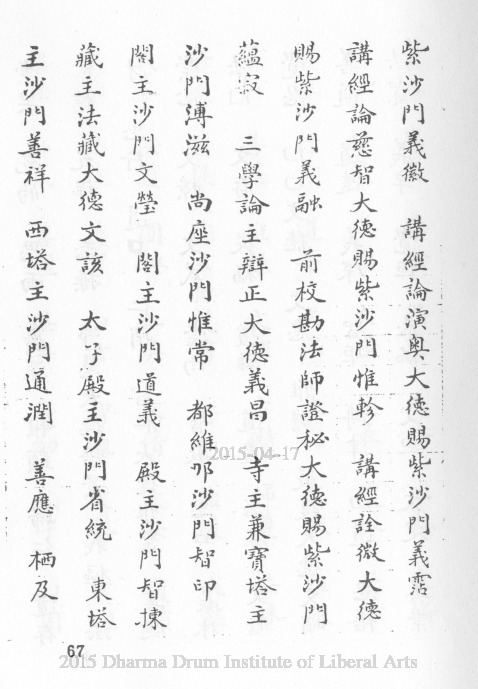 紫沙門義徽　講經論演奧大德賜紫沙門義霑
講經論慈智大德賜紫沙門惟軫　講經詮微大德
賜紫沙門義融　前校勘法師證祕大德賜紫沙門
蘊寂　三學論主辯正大德義昌　寺主兼寶塔主
沙門溥滋　尚座沙門惟常　都維那沙門智印
閣主沙門文瑩　閣主沙門道義　殿主沙門智揀
藏主法藏大德文該　太子殿主沙門省統　東塔
主沙門善祥　西塔主沙門通潤　善應　栖及
2015-04-17
67
2015 Dharma Drum Institute of Liberal Arts